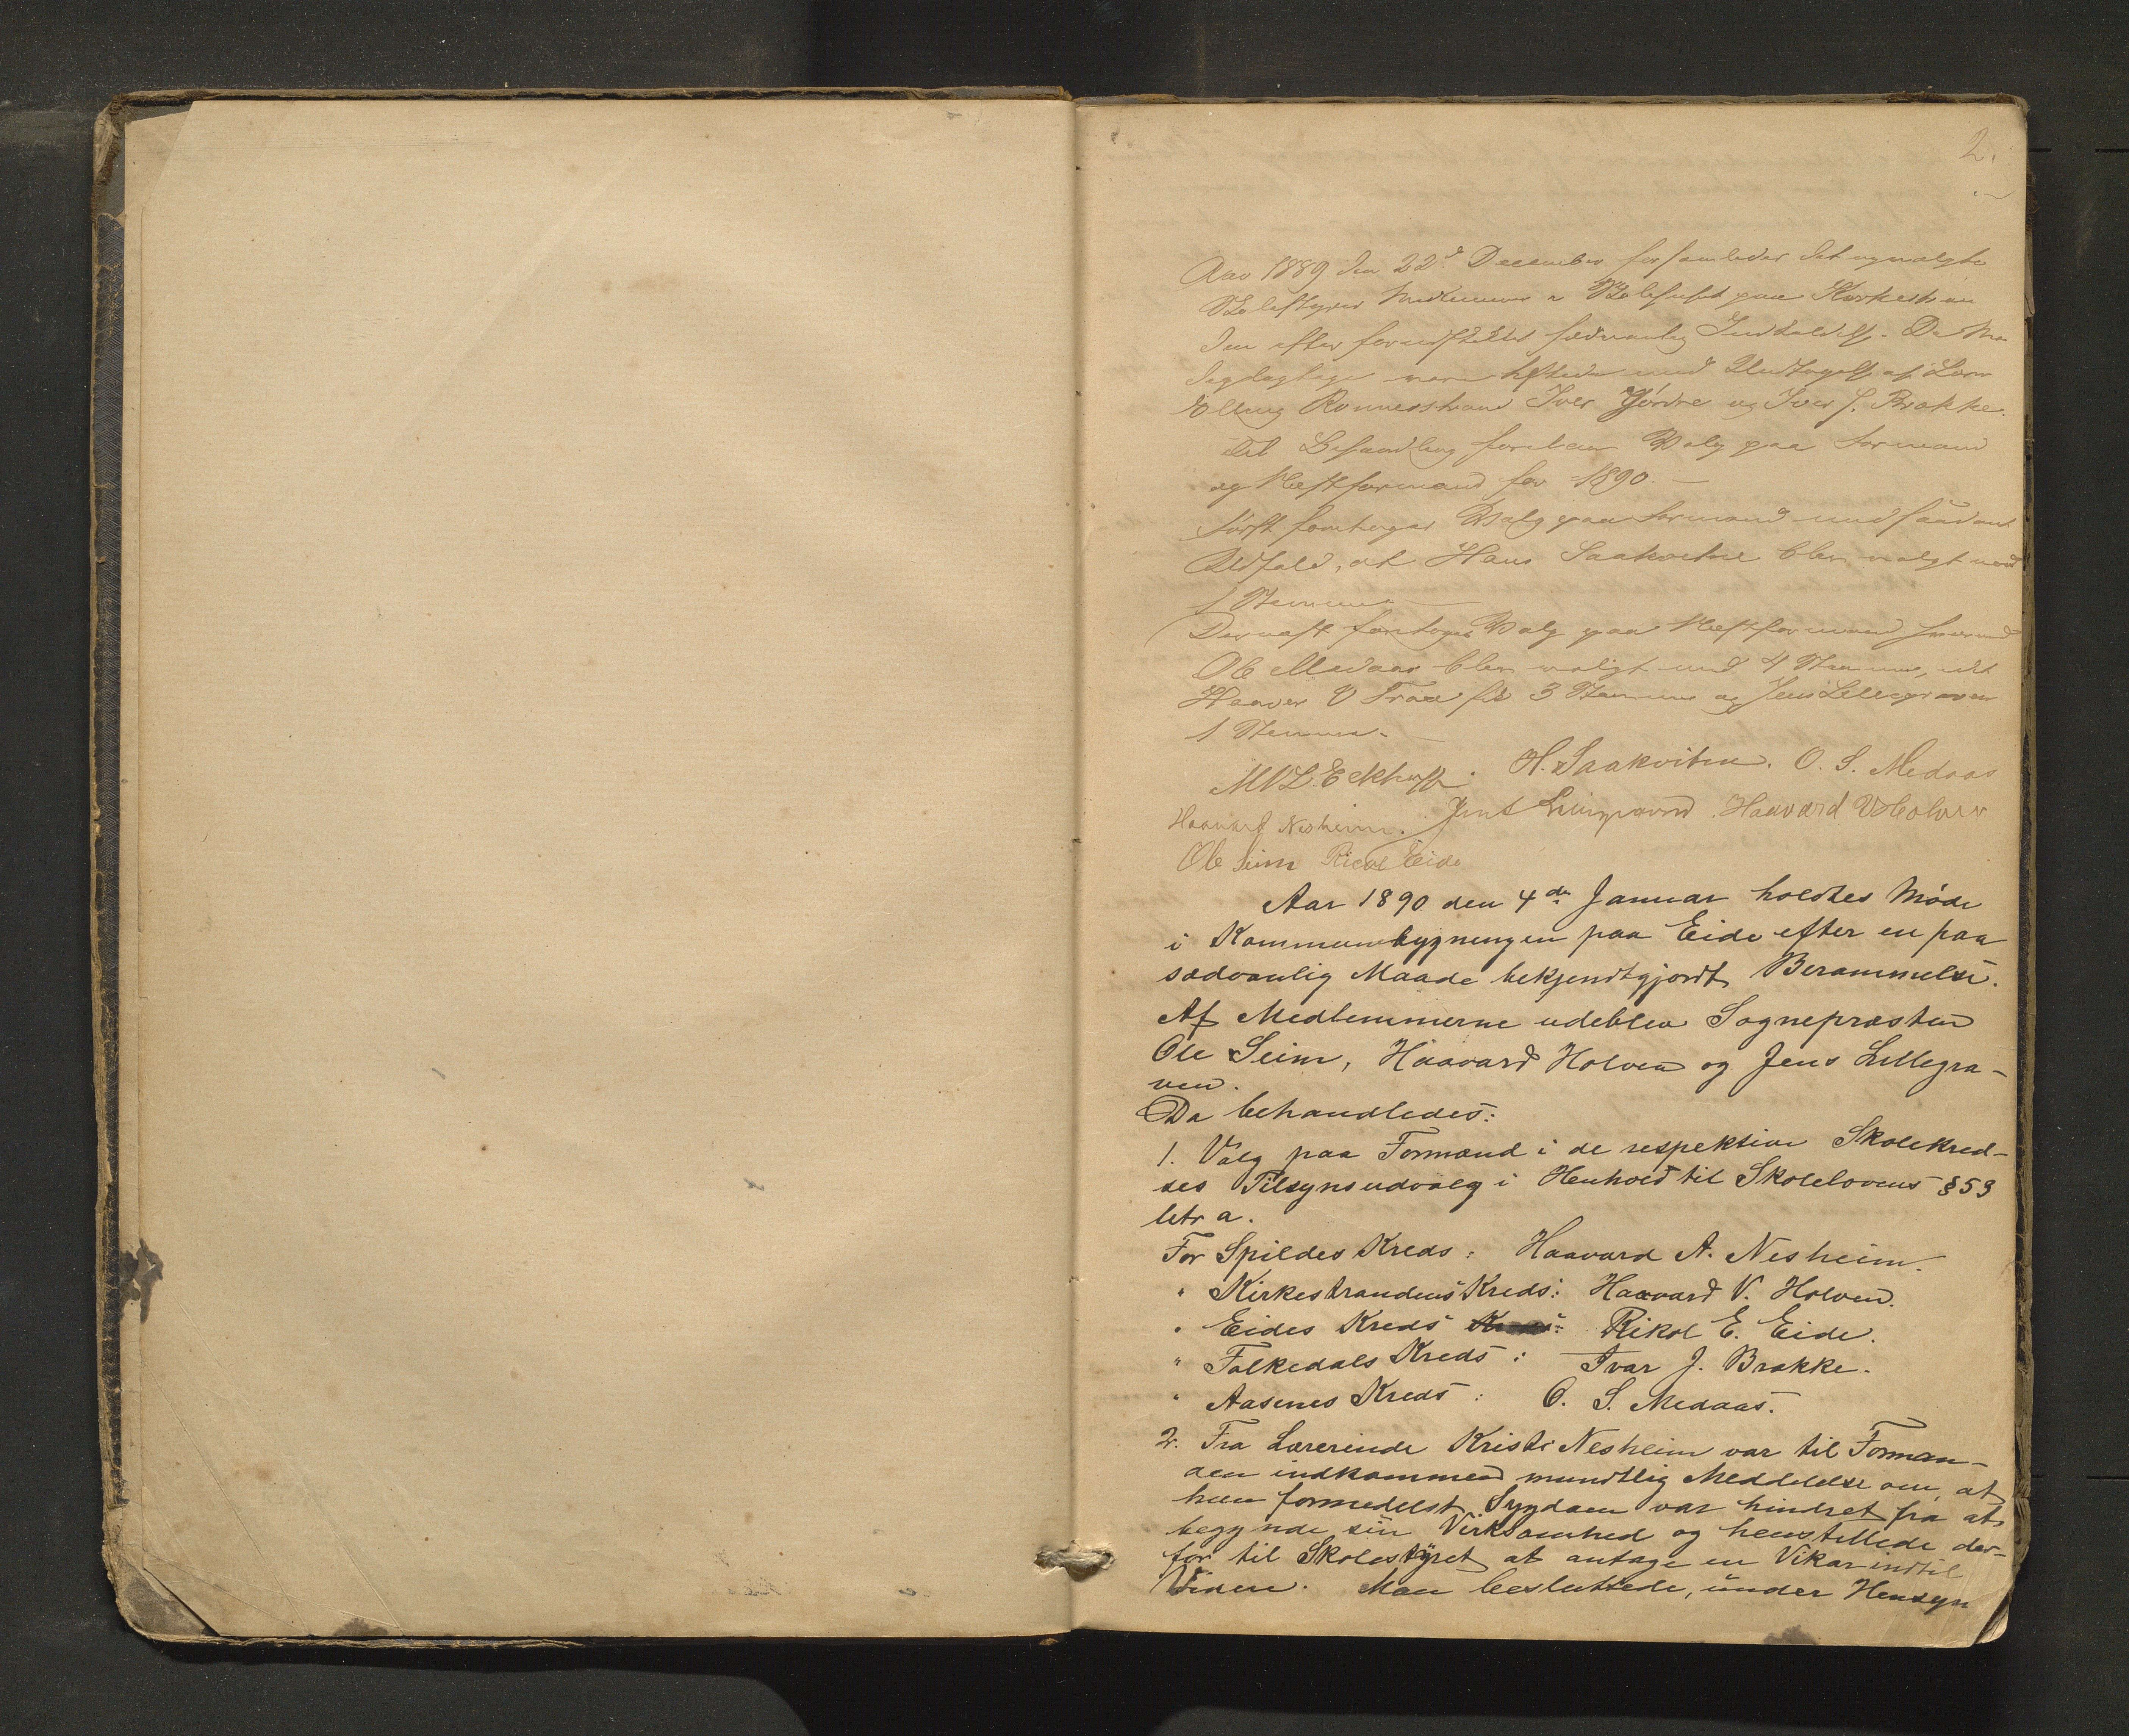 2.
Aar 1889 den 22d December forsamledes det nyvalgte
Skolestyres Medlemmer i Skolehuset paa Kirkestran
den efter forudskikket sædvanlig Indkaldelse. De
var tilstede med Undtagelse af
Elling Ronnesstrand Iver Hjørdne og Iver J. Brakke.
Til Behandling forelaa Valg paa Formand
og Næstformand for 1890. —
Først foretoges Valg paa Formand med saadant
Udfald, at Hans Saakvitne blev valgt med
Stemmer
Dernæst foretoges Valg paa Næstformand hvorved
Ole Medaas blev valgt med 4 Stemmer, idet
Haavar V fik 3 Stemmer og Jens Lillegraven
1 Stemme. —
Eckhoff. H. Saakvitne. O. S. Medaas
Haavard Nesheim. Jens Lillegraven. Haavard V Holven
Ole Seim Rikol Eide
Aar 1890 den 4de Januar holdtes Møde
i Kommunebygningen paa Eide efter en paa
sædvanlig Maade bekjendtgjordt Berammelse.
Af Medlemmerne udeblev Sognepræsten
Ole Seim, Haavard Holven og Jens Lillegra-
ven.
Da behandledes:
1. Valg paa Formænd i de respektive Skolekred-
ses Tilsynsudvalg i Henhold til Skolelovens § 53
letr a.
For Spildes Kreds: Haavard A. Nesheim.
" Kirkestrandens Kreds: Haavard V. Holven.
" Eides Kreds : Rikol E. Eide.
" Folkedals Kreds: Ivar J. Brakke.
" Aasenes Kreds: O. S. Medaas.
2. Fra Lærerinde Kristi Nesheim var til Forman-
den indkommen mundtlig Meddelelse om, at
hun formedelst Sygdom var hindret fra at
begynde sin Virksomhed og henstillede der-
for til Skolestyret at antage en Vikar indtil
Videre. Man besluttede, under Hensyn